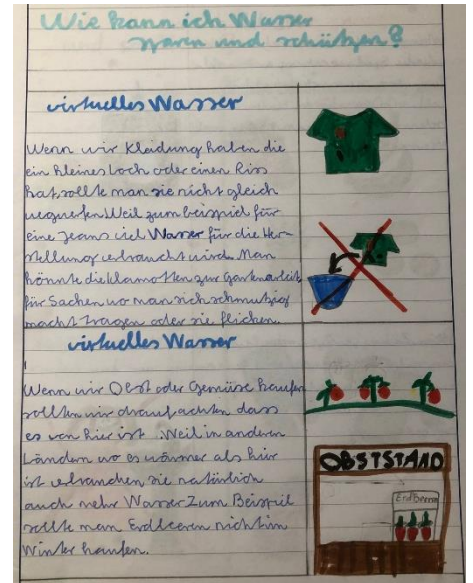 Wie kann ich Wasser
sparen und schützen?
virtuelles Wasser
Wenn wir Kleidung haben die
ein kleines Loch oder einen Riss
hat, sollte man sie nicht gleich
wegwerfen. Weil zum beispiel für
eine Jeans viel Wasser für die Her-
stellung verbraucht wird. Man
könnte die klamotten zur Gartenarbeit
für Sachen wo man sich schmutzig
macht tragen oder sie flicken.
virtuelles Wasser
Wenn wir Obst oder Gemüse kaufen
sollten wir draufachten dass
es von hier ist. Weil in anderen
Ländern wo es wärmer als hier
ist verbrauchen sie natürlich
auch mehr Wasser. Zum Beispiel
sollte man Erdbeeren nicht im
Winter kaufen.
OBSTSTAND
Erdbeeren